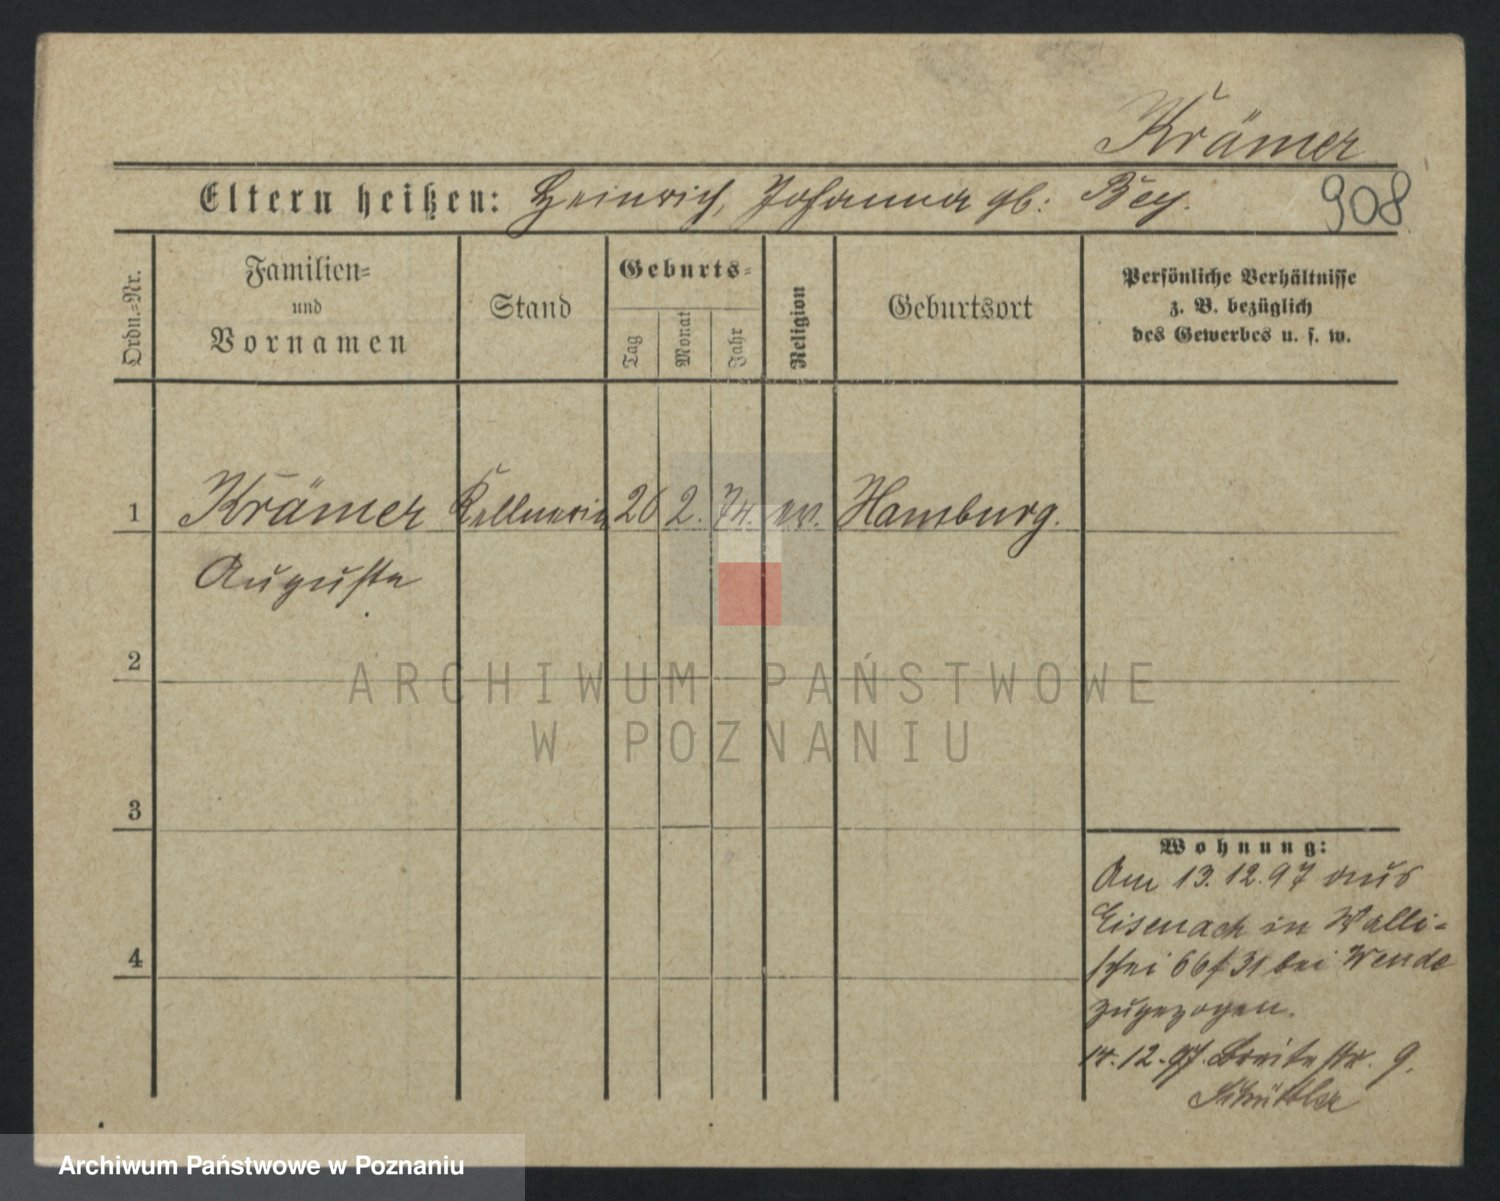 Krämer
Eltern heißen: Heinrich, Johanna gb: Bey.
908
Ordn.-Nr.
Familien-
und
Vornamen
Stand
Geburts-
Tag
Monat
Jahr
Religion
Geburtsort
Persönliche Verhältnisse
z. B. bezüglich
des Gewerbes u. s. w.
1 Krämer Kellnerin 26 2. 74. ev. Hamburg.
Auguste
2
ARCHIWUM PAŃSTWOWE
W POZNANIU
3
Wohnung:
Am 13.12.97 aus
Eisenach in Walli-
schei 66/31 bei Wende
zugezogen.
4
14.12.97. Breitestr. 9.
Schüttler
Archiwum Państwowe w Poznaniu